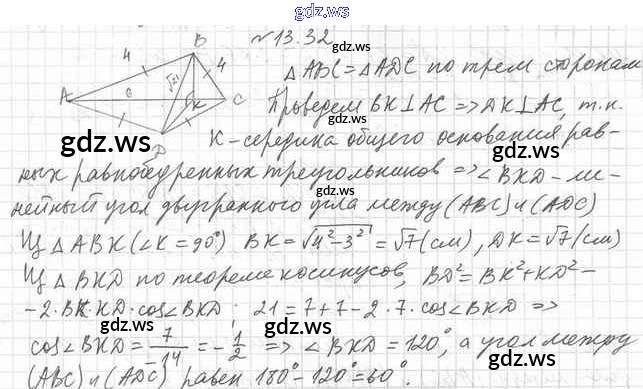 gdz.ws
№13.32
B
4
√21
4
gdz.ws
△ABC = △ADC по трем сторонам
A
6
K
C
Проведем BK⊥AC => DK⊥AC, т.к.
gdz.ws
D
gdz.ws
K - середина общего основания рав-
ных равнобедренных треугольников => ∠BKD - ли-
gdz.ws
gdz.ws
нейный угол двугранного угла между (ABC) и (ADC)
Из △ABK (∠K = 90°) BK = √4²-3² = √7 (см), DK = √7 (см)
gdz.ws
gdz.ws
Из △BKD по теореме косинусов, BD² = BK² + KD² -
- 2·BK·KD·cos∠BKD; 21 = 7 + 7 - 2·7·cos∠BKD =>
gdz.ws
gdz.ws
cos∠BKD = 7/-14 = -1/2 => ∠BKD = 120°, а угол между
(ABC) и (ADC) равен 180° - 120° = 60°.
gdz.ws
gdz.ws